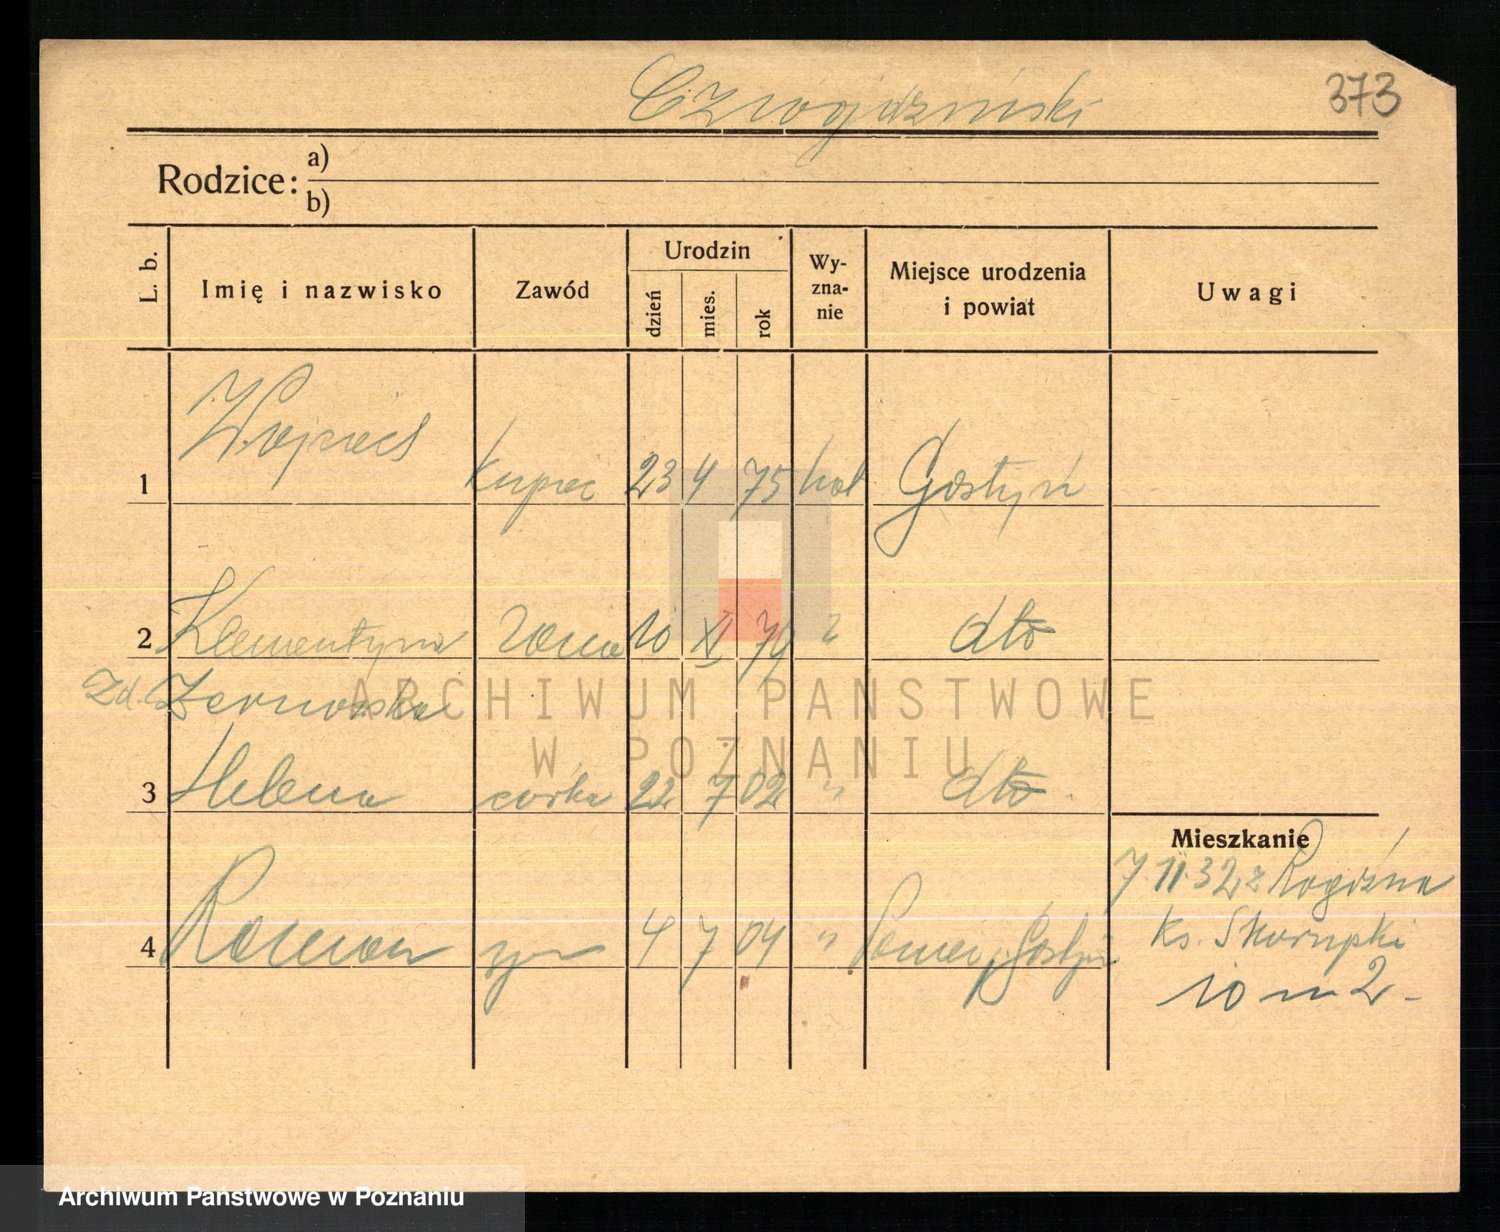 373
Czwojdziński
Rodzice: a)
b)
L. b. Imię i nazwisko Zawód Urodzin dzień mies. rok Wy-zna-nie Miejsce urodzenia i powiat Uwagi
1 Wojciech kupiec 23 4 75 kat Gostyń
2 Klementyna żona 10 XI 79 " dto
zd.
3 Helena córka 22 7 02 " dto.
4 Roman syn 4 7 04 " Gostyń
Mieszkanie
7.11.32 z Rogoźna
ks. Skorupki
10 m 2-
ARCHIWUM PAŃSTWOWE
W POZNANIU
Archiwum Państwowe w Poznaniu